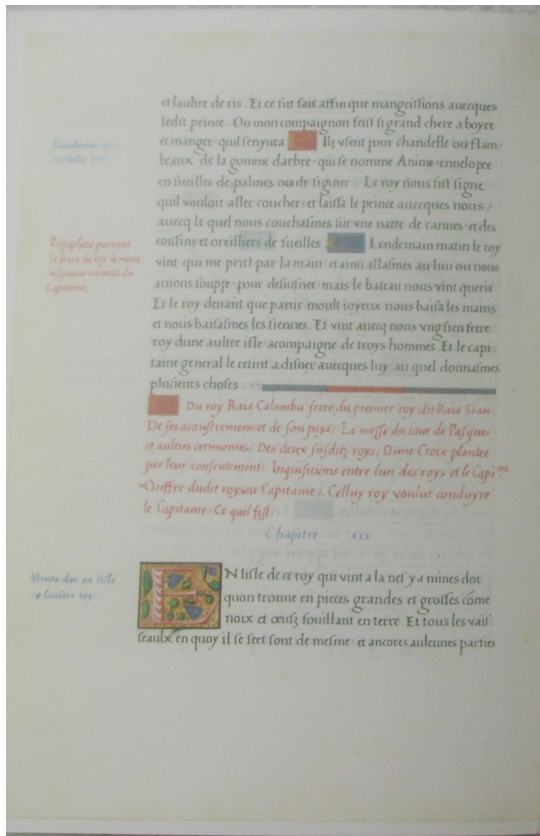 et laultre de ris. Et ce fut fait affin que mangeissions auecques
ledit peince. Ou mon compaignon feist si grand chere a boyre
et manger quil senyura Ilz vsent pour chandelle ou flam-
beaux de la gomme darbre qui se nomme Anime enuelopee
en fueilles de palmes ou de figuier. Le roy nous fist signe
quil vouloit aller coucher et laissa le prince auecques nous /
auecq le quel nous couchasmes sur vne natte de cannes et des
coussins et oreilliers de fueilles Lendemain matin le roy
Pigaphete partant
la frere du roy le mene
Capitame
vint qui me prist par la main et ainsi allasmes au lieu ou nous
auions souppe pour desiusner mais le bateau nous vint querir
Et le roy deuant que partir moult ioyeux nous baisa les mains
et nous baisasmes les siennes. Et vint auecq nous vng sien frere
roy dune aultre isle acompaigne de troys hommes. Et le capi
taine general le retint a disner auecques luy au quel donnasmes
plusieurs choses
Du roy Raia Calambu frere du premier roy dit Raia Siau
De ses acoustremens et de son pays / La messe du iour de Pasques
et aultres cerimonies / Des deux susditz roys / Dune Croix plantee
par leur consentement / Inquisitions entre lun des roys et le Capi.ne
Quiffre dudit roy au Capitame / Celluy roy voulut conduyre
le Capitame Ce quil fist /
Chapitre xix
Mines dor en lisle
de laultre roy
EN lisle de ce roy qui vint a la nef y a mines dor
quon trouue en pieces grandes et grosses come
noix et oeufz fouillant en terre Et tous les vais
seaulx en quoy il se sert sont de mesme et ancores aulcunes parties